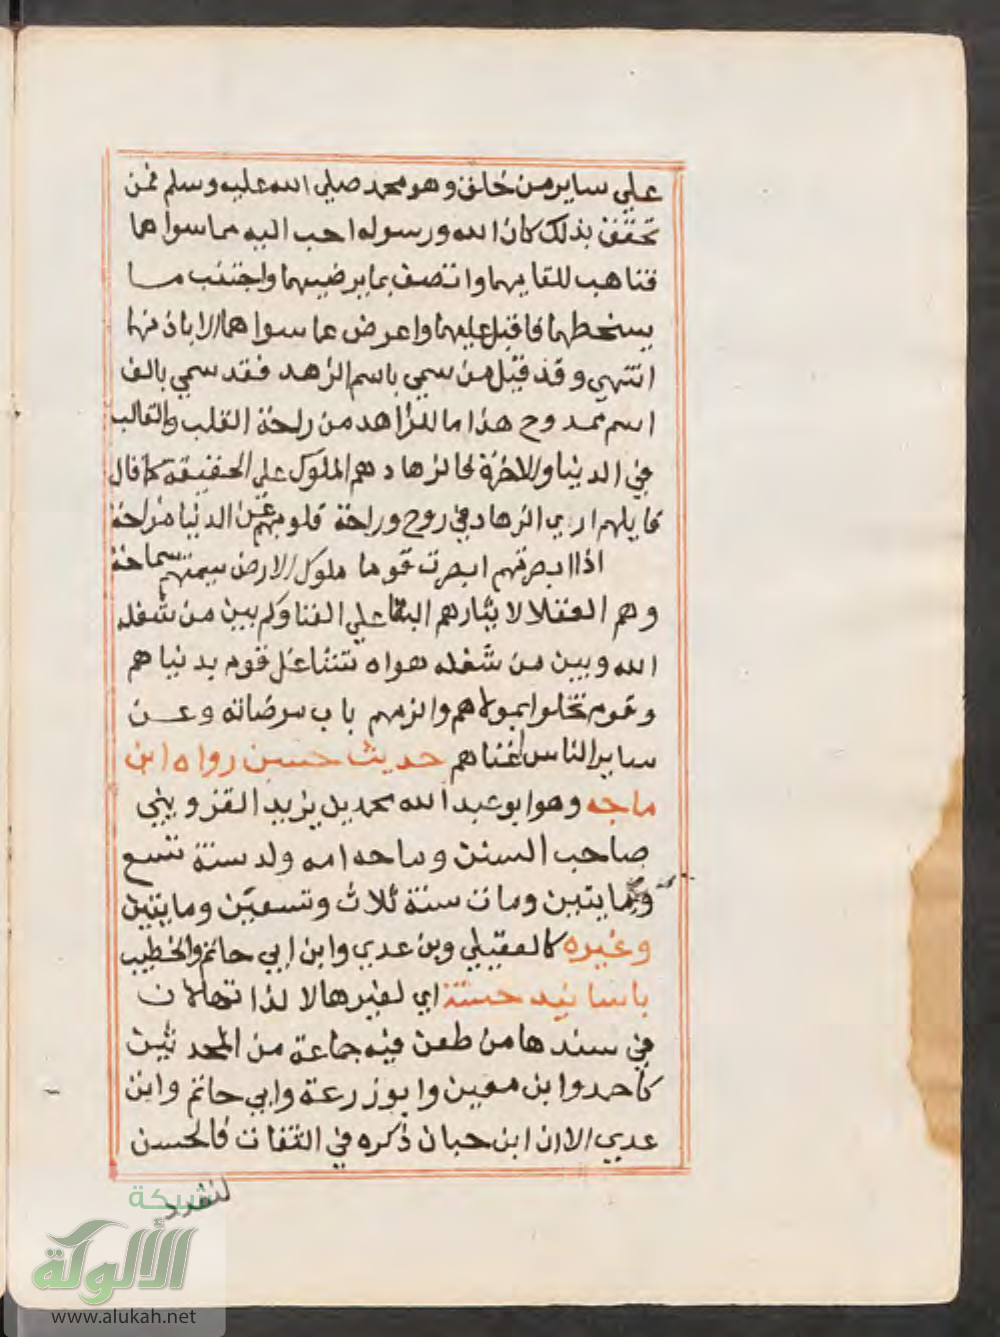 علي ساير من خلق وهو محمد صلي الله عليه وسلم فمن
تحقق بذلك كان الله ورسوله احب اليه مما سواهما
فتاهب للقايهما واتصف بما يرضيهما واجتنب ما
يسخطهما فاقبل عليهما واعرض عما سواهما الا بان نهما
انتهي وقد قيل من سمي باسم الزهد فقد سمي بالف
اسم ممدوح هذا ما للزاهد من راحة القلب والقالب
في الدنيا والاخرة فالزهاد هم الملوك علي الحقيقة كما قال
قايلهم اري الزهاد في روح وراحة قلوبهم عن الدنيا مزاحة
اذا ابصرتهم ابصرت قوما ملوك الارض سيمتهم سماحة
وهم العقلا لايثارهم البقا علي الفنا وكم بين من شغله
الله وبين من شغله هواه تتشاغل قوم بدنياهم
وقوم تخلوا بمولاهم والزمهم باب مرضاته وعن
ساير الناس اغناهم حديث حسن رواه ابن
ماجه وهو ابو عبد الله محمد بن يزيد القزويني
صاحب السنن وماجه امه ولد سنة تسع
ومايتين ومات سنة ثلاث وتسعين ومايتين
وغيره كالعقيلي وبن عدي وابن ابي حاتم والخطيب
باسانيد حسنة اي لغيرها لا لذاتها لان
في سندها من طعن فيه جماعة من المحدثين
كاحمد وابن معين وابو زرعة وابي حاتم وابن
عدي الا ان ابن حبان ذكره في الثقات فالحسن
لتفرد
شبكة
الألوكة
www.alukah.net